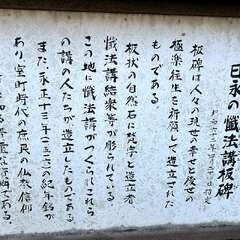 日永の懺法講板碑
板碑は人々の現世の幸と後世の
極楽往生を祈願して造立された
ものである。
板状の自然石に梵字と造立者
懺法講結衆等が彫られている
この地に懺法講がつくられこれら
の講の人たちが造立したものである。
また、永正十三年(一五一六)の紀年銘が
あり室町時代の庶民の仏教信仰